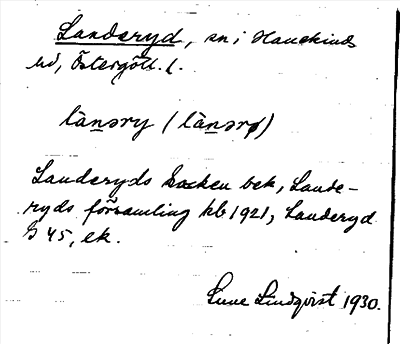 Landeryd, sn i Hanekinds
hd, Östergötl. l.
la̠nəry (la̠nərø)
Landeryds Socken bek, Lande-
ryds församling kb 1921, Landeryd
G 45, ek.
Sune Lindqvist 1930.